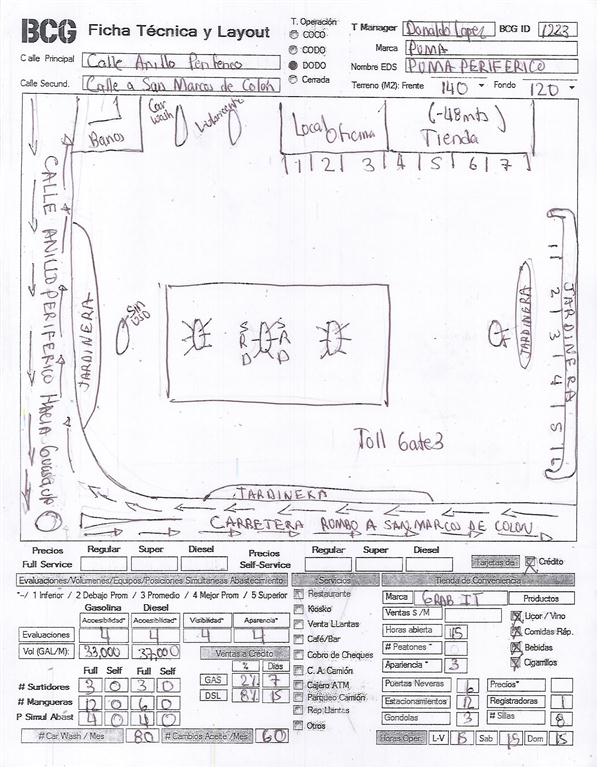 BCG Ficha Técnica y Layout
T. Operación
COCO
CODO
DODO
Cerrada
T Manager Donaldo Lopez BCG ID 1223
Marca PUMA
Nombre EDS PUMA PERIFERICO
Terreno (M2): Frente 140 Fondo 120
Calle Principal Calle Anillo Periferico
Calle Secund. Calle a San Marcos de Colon
Banos
Car wash
Local Oficina
(-48mts) Tienda
1 2 3 4 5 6 7
CALLE ANILLO PERIFERICO HACIA
JARDINERA
SIN USO
S R D
S R D
JARDINERA
1 2 3 4 5 6
JARDINERA
Toll Gate 3
JARDINERA
CARRETERA RUMBO A SAN MARCOS DE COLON
Precios Full Service Regular Super Diesel
Precios Self-Service Regular Super Diesel
Tarjetas de Crédito
Evaluaciones/Volumenes/Equipos/Posiciones Simultaneas Abastecimiento
Servicios
Tienda de Conveniencia
*-/ 1 Inferior / 2 Debajo Prom / 3 Promedio / 4 Mejor Prom / 5 Superior
Gasolina Diesel
Accesibilidad* Accesibilidad* Visibilidad* Aparencia*
Evaluaciones 4 4 4 4
Vol (GAL/M): 33,000 37,000
Ventas a Crédito
% Dias
GAS 2% 7
DSL 8% 15
Full Self Full Self
# Surtidores 3 0 3 0
# Mangueras 12 0 6 0
P Simul Abast 4 0 4 0
# Car Wash / Mes 80 # Cambios Aceite /Mes 60
Restaurante
Kiosko
Venta LLantas
Café/Bar
Cobro de Cheques
C. A. Camión
Cajero ATM
Parqueo Camión
Rep Llantas
Otros
Marca GRAB IT
Ventas S /M
Horas abierta 15
# Peatones * 0
Apariencia * 3
Productos
Licor / Vino
Comidas Ráp.
Bebidas
Cigarrillos
Puertas Neveras 6 Precios*
Estacionamientos 12 Registradoras 1
Gondolas 3 # Sillas 8
Horas Oper. L-V 15 Sab 15 Dom 15